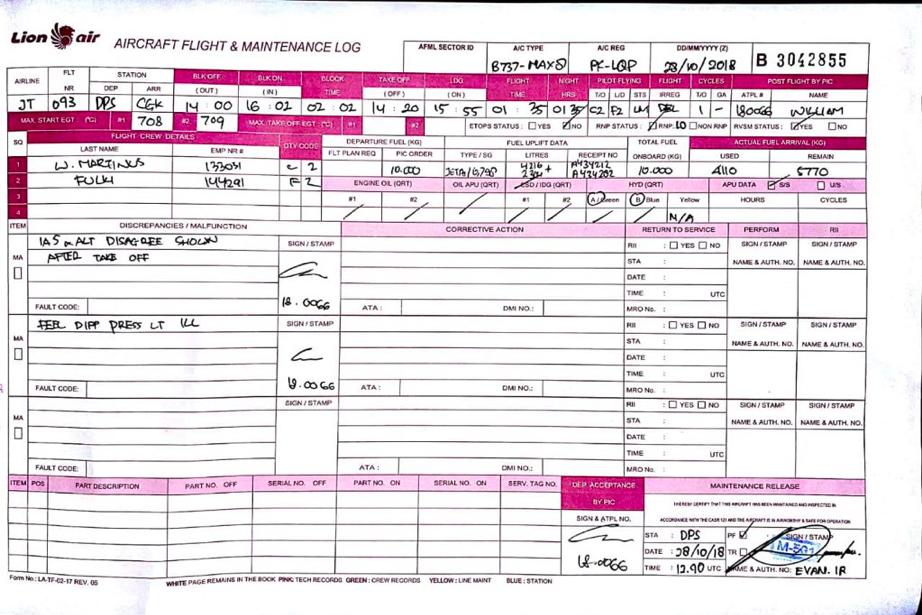 Lion air AIRCRAFT FLIGHT & MAINTENANCE LOG
AFML SECTOR ID A/C TYPE A/C REG DD/MMM/YYYY (Z) B 3042855
B737-MAX8 PK-LQP 28/10/2018
AIRLINE FLT NR STATION DEP ARR BLK OFF (OUT) BLK ON (IN) BLOCK TIME TAKE OFF (OFF) LDG (ON) FLIGHT TIME NIGHT HRS PILOT FLYING T/O L/D STS FLIGHT IRREG CYCLES T/O GA POST FLIGHT BY PIC ATPL # NAME
JT 043 DPS CGK 14:00 16:02 02:02 14:20 15:55 01:35 01 35 C2 F2 DEL 1 - 180066 WILLIAM
MAX. START EGT : (°C) #1 708 #2 709 MAX. TAKE OFF EGT : (°C) #1 #2 ETOPS STATUS : YES NO RNP STATUS : RNP. 10 NON RNP RVSM STATUS : YES NO
SQ FLIGHT CREW DETAILS QTY CODE DEPARTURE FUEL (KG) FUEL UPLIFT DATA TOTAL FUEL ACTUAL FUEL ARRIVAL (KG)
LAST NAME EMP NR # FLT PLAN REQ PIC ORDER TYPE / SG LITRES RECEIPT NO ONBOARD (KG) USED REMAIN
1 W. MARTINUS 133031 C 2 10.000 JETA/0,798 4216 + A434212 10.000 4110 5770
2 FULKI 144291 F 2 A434202
ENGINE OIL (QRT) OIL APU (QRT) CSD / IDG (QRT) HYD (QRT) APU DATA S/S U/S
3 #1 #2 #1 #2 A / Green B / Blue Yellow HOURS CYCLES
4 N/A
ITEM DISCREPANCIES / MALFUNCTION CORRECTIVE ACTION RETURN TO SERVICE PERFORM RII
IAS & ALT DISAGREE SHOWN SIGN / STAMP RII : YES NO SIGN / STAMP SIGN / STAMP
MA AFTER TAKE OFF STA : NAME & AUTH. NO. NAME & AUTH. NO.
DATE :
TIME : UTC
FAULT CODE: 18.0066 ATA : DMI NO.: MRO No. :
FEEL DIFF PRESS LT ILL SIGN / STAMP RII : YES NO SIGN / STAMP SIGN / STAMP
MA STA : NAME & AUTH. NO. NAME & AUTH. NO.
DATE :
TIME : UTC
FAULT CODE: 18.0066 ATA : DMI NO.: MRO No. :
SIGN / STAMP RII : YES NO SIGN / STAMP SIGN / STAMP
MA STA : NAME & AUTH. NO. NAME & AUTH. NO.
DATE :
TIME : UTC
FAULT CODE: ATA : DMI NO.: MRO No. :
ITEM POS PART DESCRIPTION PART NO. OFF SERIAL NO. OFF PART NO. ON SERIAL NO. ON SERV. TAG NO. DEP. ACCEPTANCE MAINTENANCE RELEASE
BY PIC I HEREBY CERTIFY THAT THIS AIRCRAFT HAS BEEN MAINTAINED AND INSPECTED IN
SIGN & ATPL NO. ACCORDANCE WITH THE CASR 121 AND THE AIRCRAFT IS IN AIRWORTHY & SAFE FOR OPERATION
STA : DPS PF SIGN / STAMP
DATE : 28/10/18 TR M-501
18.0066 TIME : 12.40 UTC NAME & AUTH. NO: EVAN. IR
Form No.: LA-TF-02-17 REV. 05 WHITE PAGE REMAINS IN THE BOOK PINK: TECH RECORDS GREEN : CREW RECORDS YELLOW : LINE MAINT BLUE : STATION